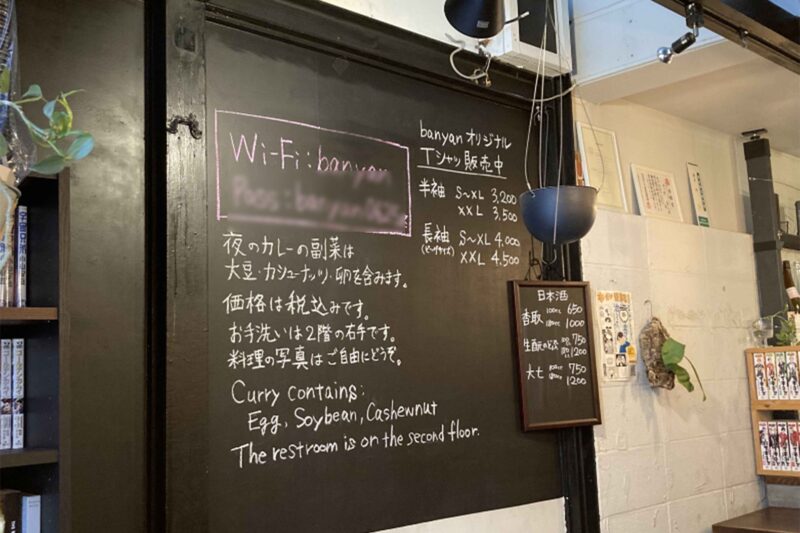 Wi-Fi: banyan
banyan オリジナル
Tシャツ販売中
半袖 S～XL 3,200
XXL 3,500
長袖 S～XL 4,000
XXL 4,500
夜のカレーの副菜は
大豆・カシューナッツ・卵を含みます。
価格は税込みです。
お手洗いは2階の右手です。
料理の写真はご自由にどうぞ。
Curry contains:
Egg, Soybean, Cashewnut
The restroom is on the second floor.
日本酒
香取 650
1000
750
1200
大七 750
1200